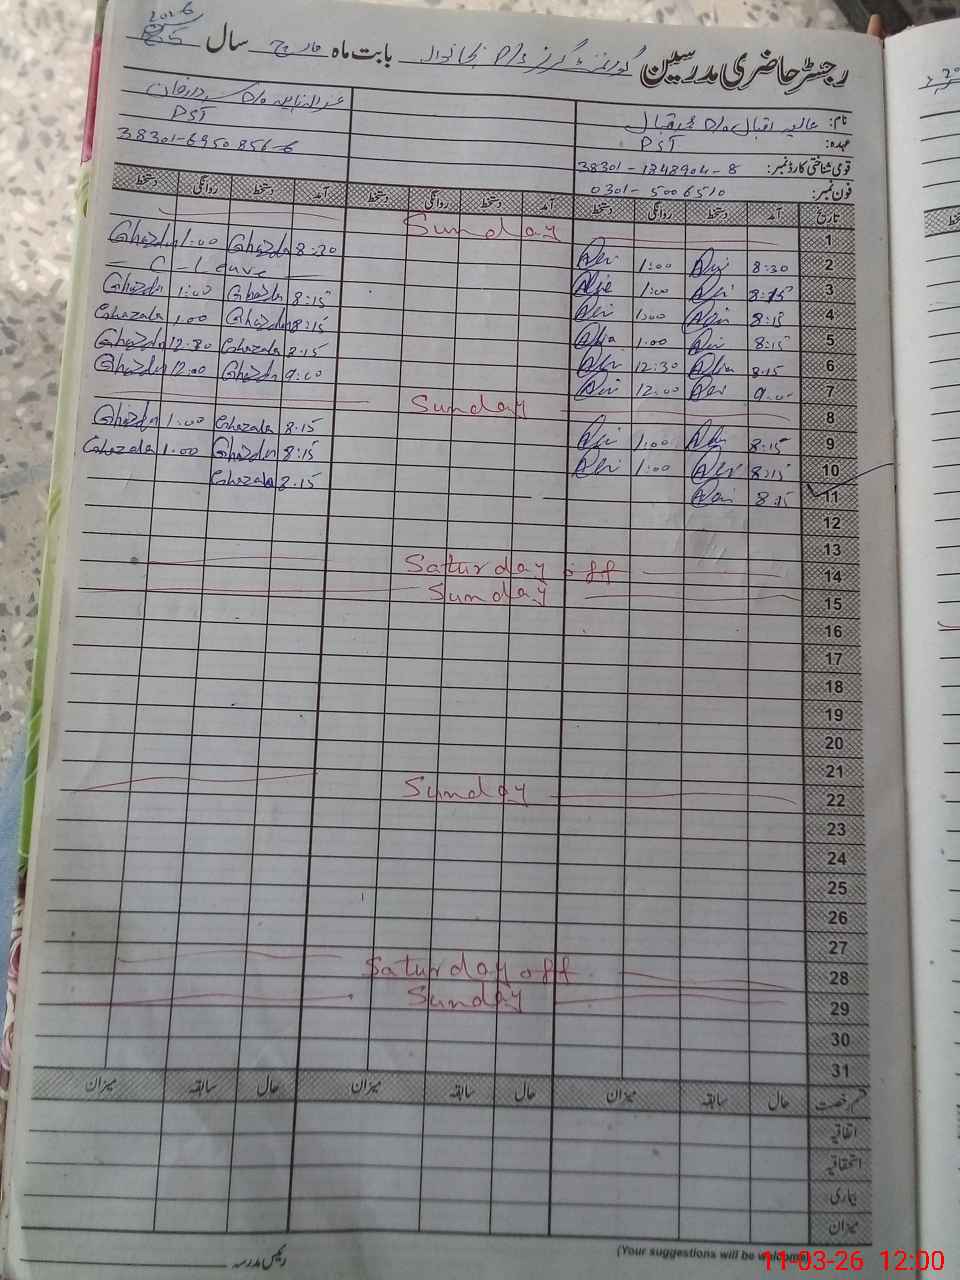 رجسٹر حاضری مدرسین گورنمنٹ گرلز P/S بابت ماہ مارچ سال 2026
نام: عالیہ اقبال D/o محمد اقبال
عہدہ: PST
PST
قومی شناختی کارڈ نمبر: 38301-1848904-8
38301-6950856-6
فون نمبر: 0301-5006510
تاریخ آمد دستخط روانگی دستخط آمد دستخط روانگی دستخط آمد دستخط روانگی دستخط
1 Sunday
2 8:30 1:00 8:20 Ghazala 1:00 Ghazala
3 8:15 1:00 - C - Leave -
4 8:15 1:00 8:15 Ghazala 1:00 Ghazala
5 8:15 1:00 8:15 Ghazala 1.00 Ghazala
6 8:15 12:30 8.15 Ghazala 12:30 Ghazala
7 9:00 12:00 9:00 Ghazala 12:00 Ghazala
8 Sunday
9 8:15 1:00 8.15 Ghazala 1:00 Ghazala
10 8:15 1:00 8:15 Ghazala 1.00 Ghazala
11 8:15 8.15 Ghazala
12
13
14 Saturday off
15 Sunday
16
17
18
19
20
21
22 Sunday
23
24
25
26
27
28 Saturday off
29 Sunday
30
31
قسم رخصت حال سابقہ میزان حال سابقہ میزان حال سابقہ میزان
اتفاقیہ
استحقاقیہ
بیماری
میزان
(Your suggestions will be welcome)
رئیس مدرسہ
11-03-26 12:00